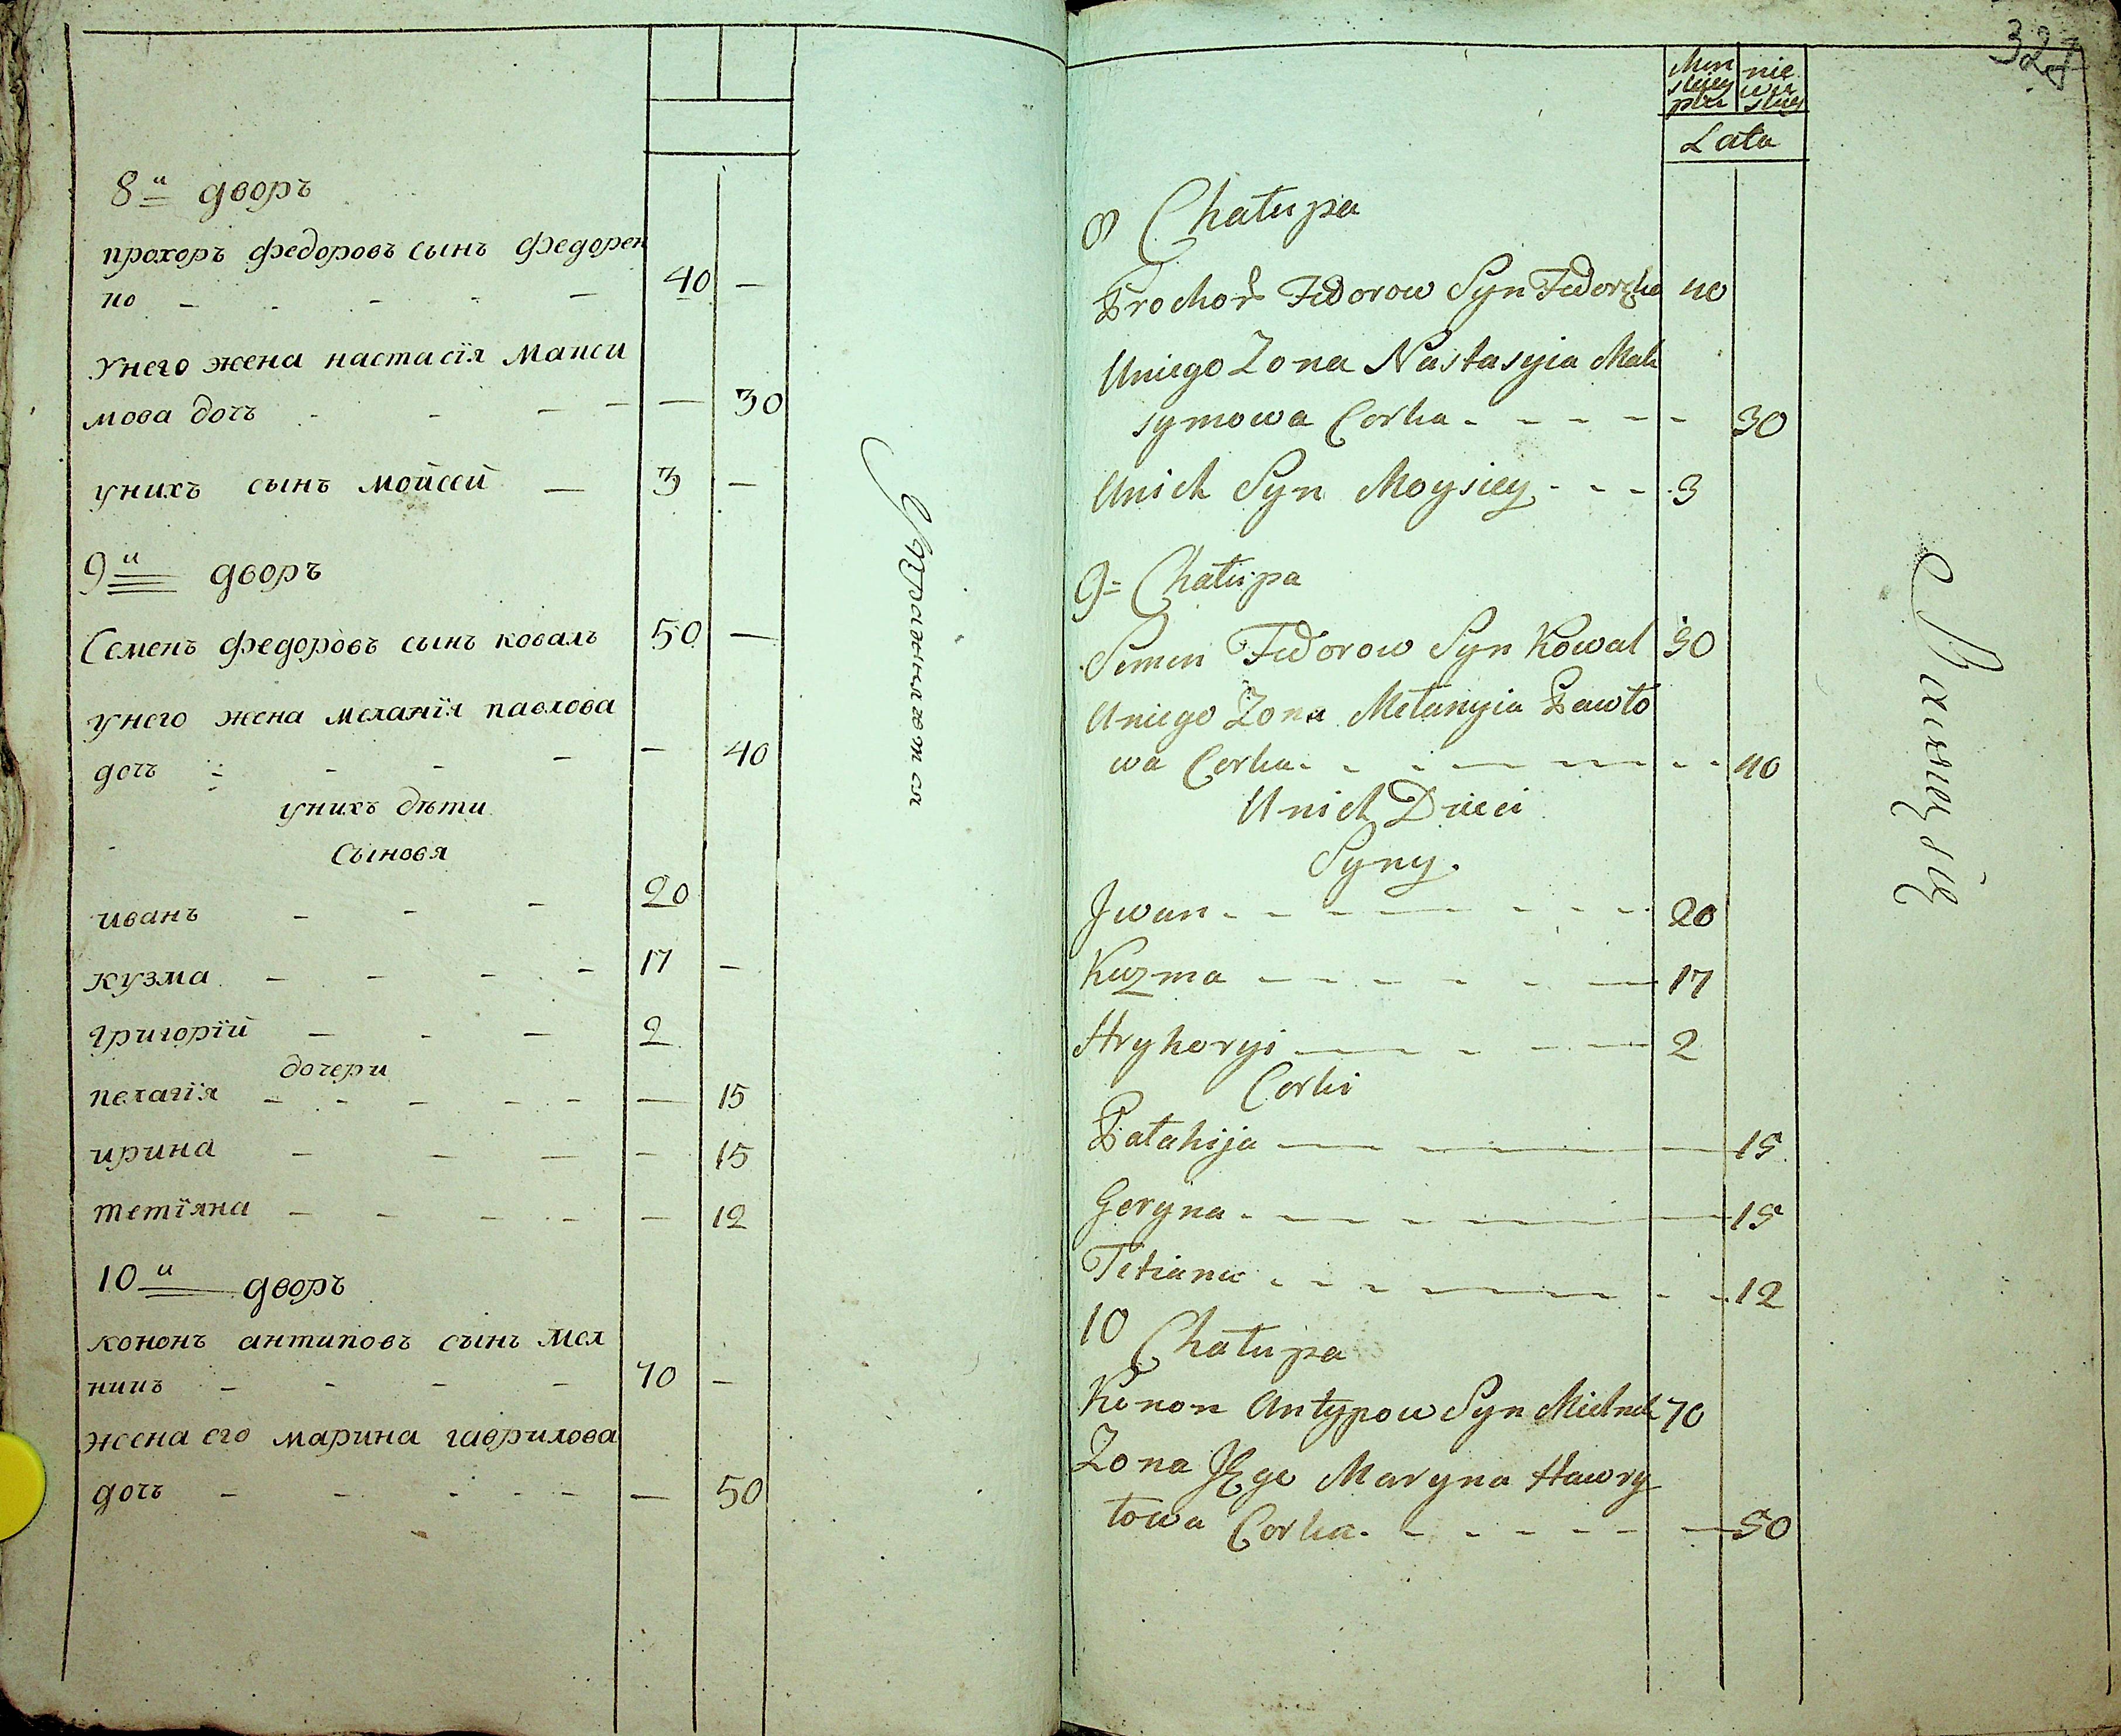 8й дворъ
прохоръ федоровъ сынъ федорен
ко 40 —
унего жена настасїя макси
мова дочъ — 30
унихъ сынъ мойсей — 3 —
9й дворъ
Семенъ федоровъ сынъ коваль 50 —
унего жена меланїя павлова
дочъ — 40
унихъ дѣти
Сыновя
иванъ 20
кузма 17 —
григорїй 2
дочери
пелагїя — 15
ирина — 15
тетїяна — 12
10й дворъ
кононъ антиповъ сынъ мел
никъ 70 —
жена его марина гаврилова
дочъ — 50
Упражняются
327
Lata
8 Chałupa
Prochor Fedorow Syn Fedorzko 40
Uniego Zona Nastasyia Mak
symowa Corka 30
Unich Syn Moysiey 3
9 Chałupa
Semen Fedorow Syn Kowal 50
Uniego Zona Mełanyia Pawło
wa Corka 40
Unich Dzieci
Syny.
Jwan 20
Kuzma 17
Hryhoryi 2
Corki
Pałahija 15
Geryna 15
Tetiana 12
10 Chałupa
Konon Antypow Syn Mielnik 70
Zona JEgo Maryna Hawry
łowa Corka 50